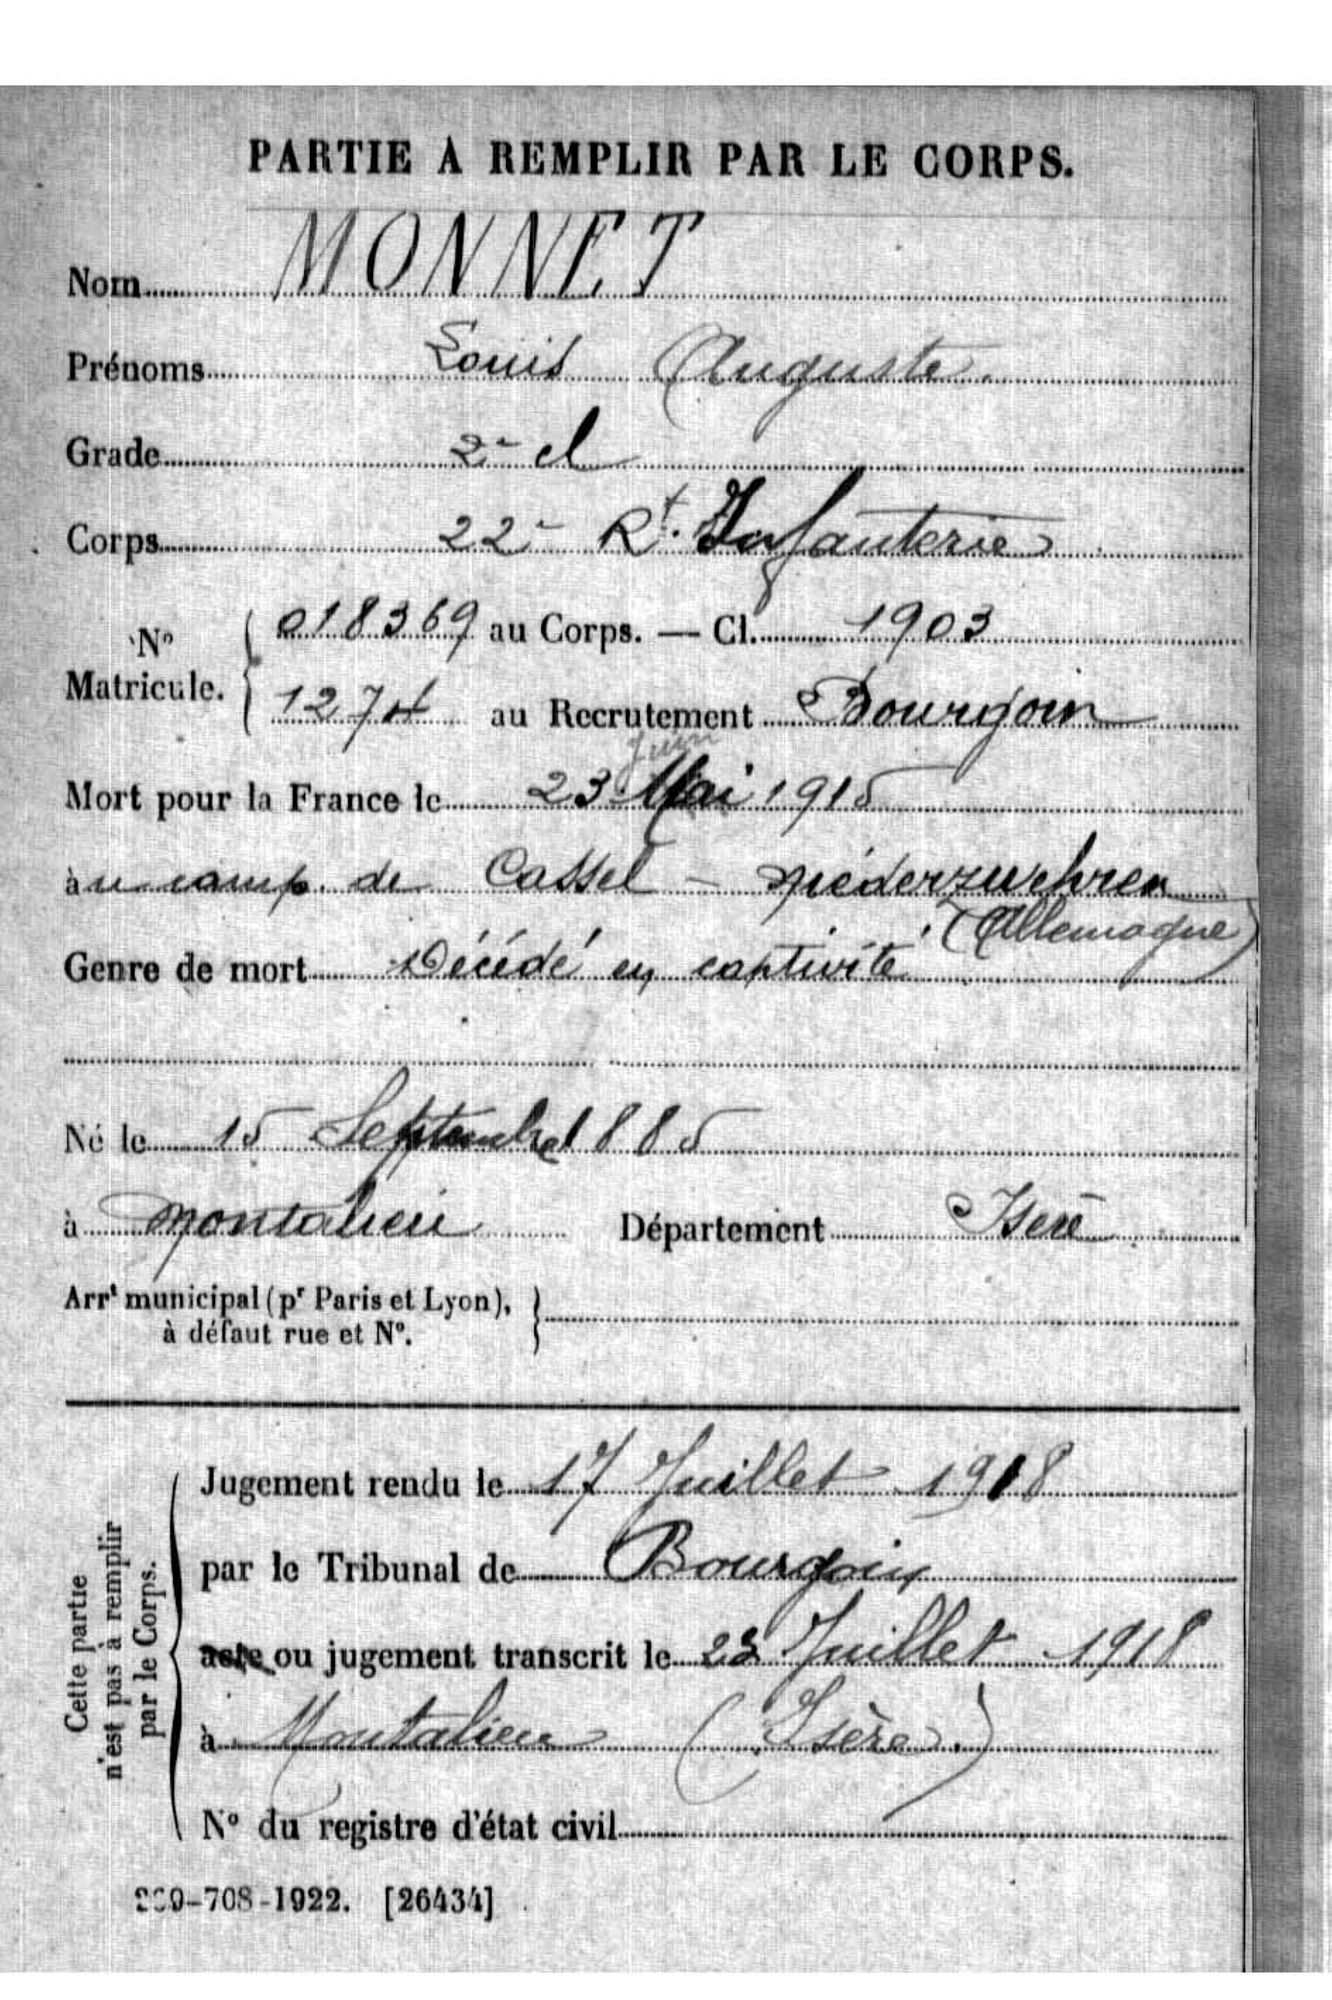 PARTIE A REMPLIR PAR LE CORPS.
Nom MONNET
Prénoms Louis Auguste.
Grade 2e cl
Corps 22e Rt. Infanterie
No Matricule. 018369 au Corps. — Cl. 1903
1274 au Recrutement Bourgoin
Juin
Mort pour la France le 23 Mai 1915
au camp. de Cassel – niéderzwehren
(Allemagne)
Genre de mort Décédé en captivité
Né le 15 Septembre 1885
à Montalieu Département Isère
Arrt municipal (pr Paris et Lyon),
à défaut rue et No.
Cette partie
n'est pas à remplir
par le Corps.
Jugement rendu le 17 Juillet 1918
par le Tribunal de Bourgoin
acte ou jugement transcrit le 23 Juillet 1918
à Montalieu (Isère)
No du registre d'état civil
-708-1922. [26434]